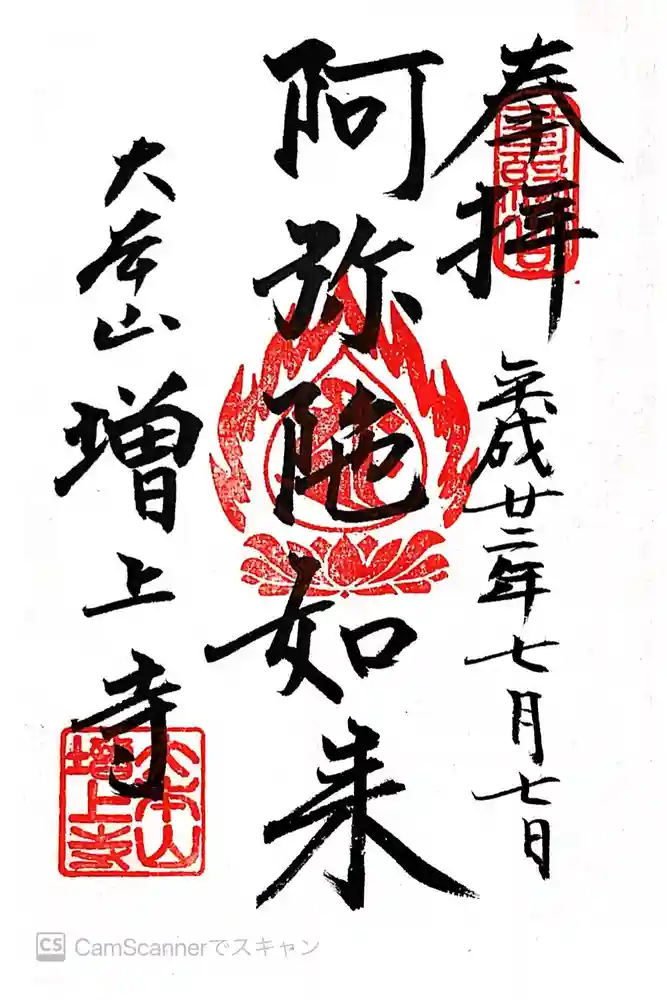 奉拝
平成廿二年七月七日
阿弥陀如来
大本山増上寺
大本山
増上寺
CS CamScannerでスキャン